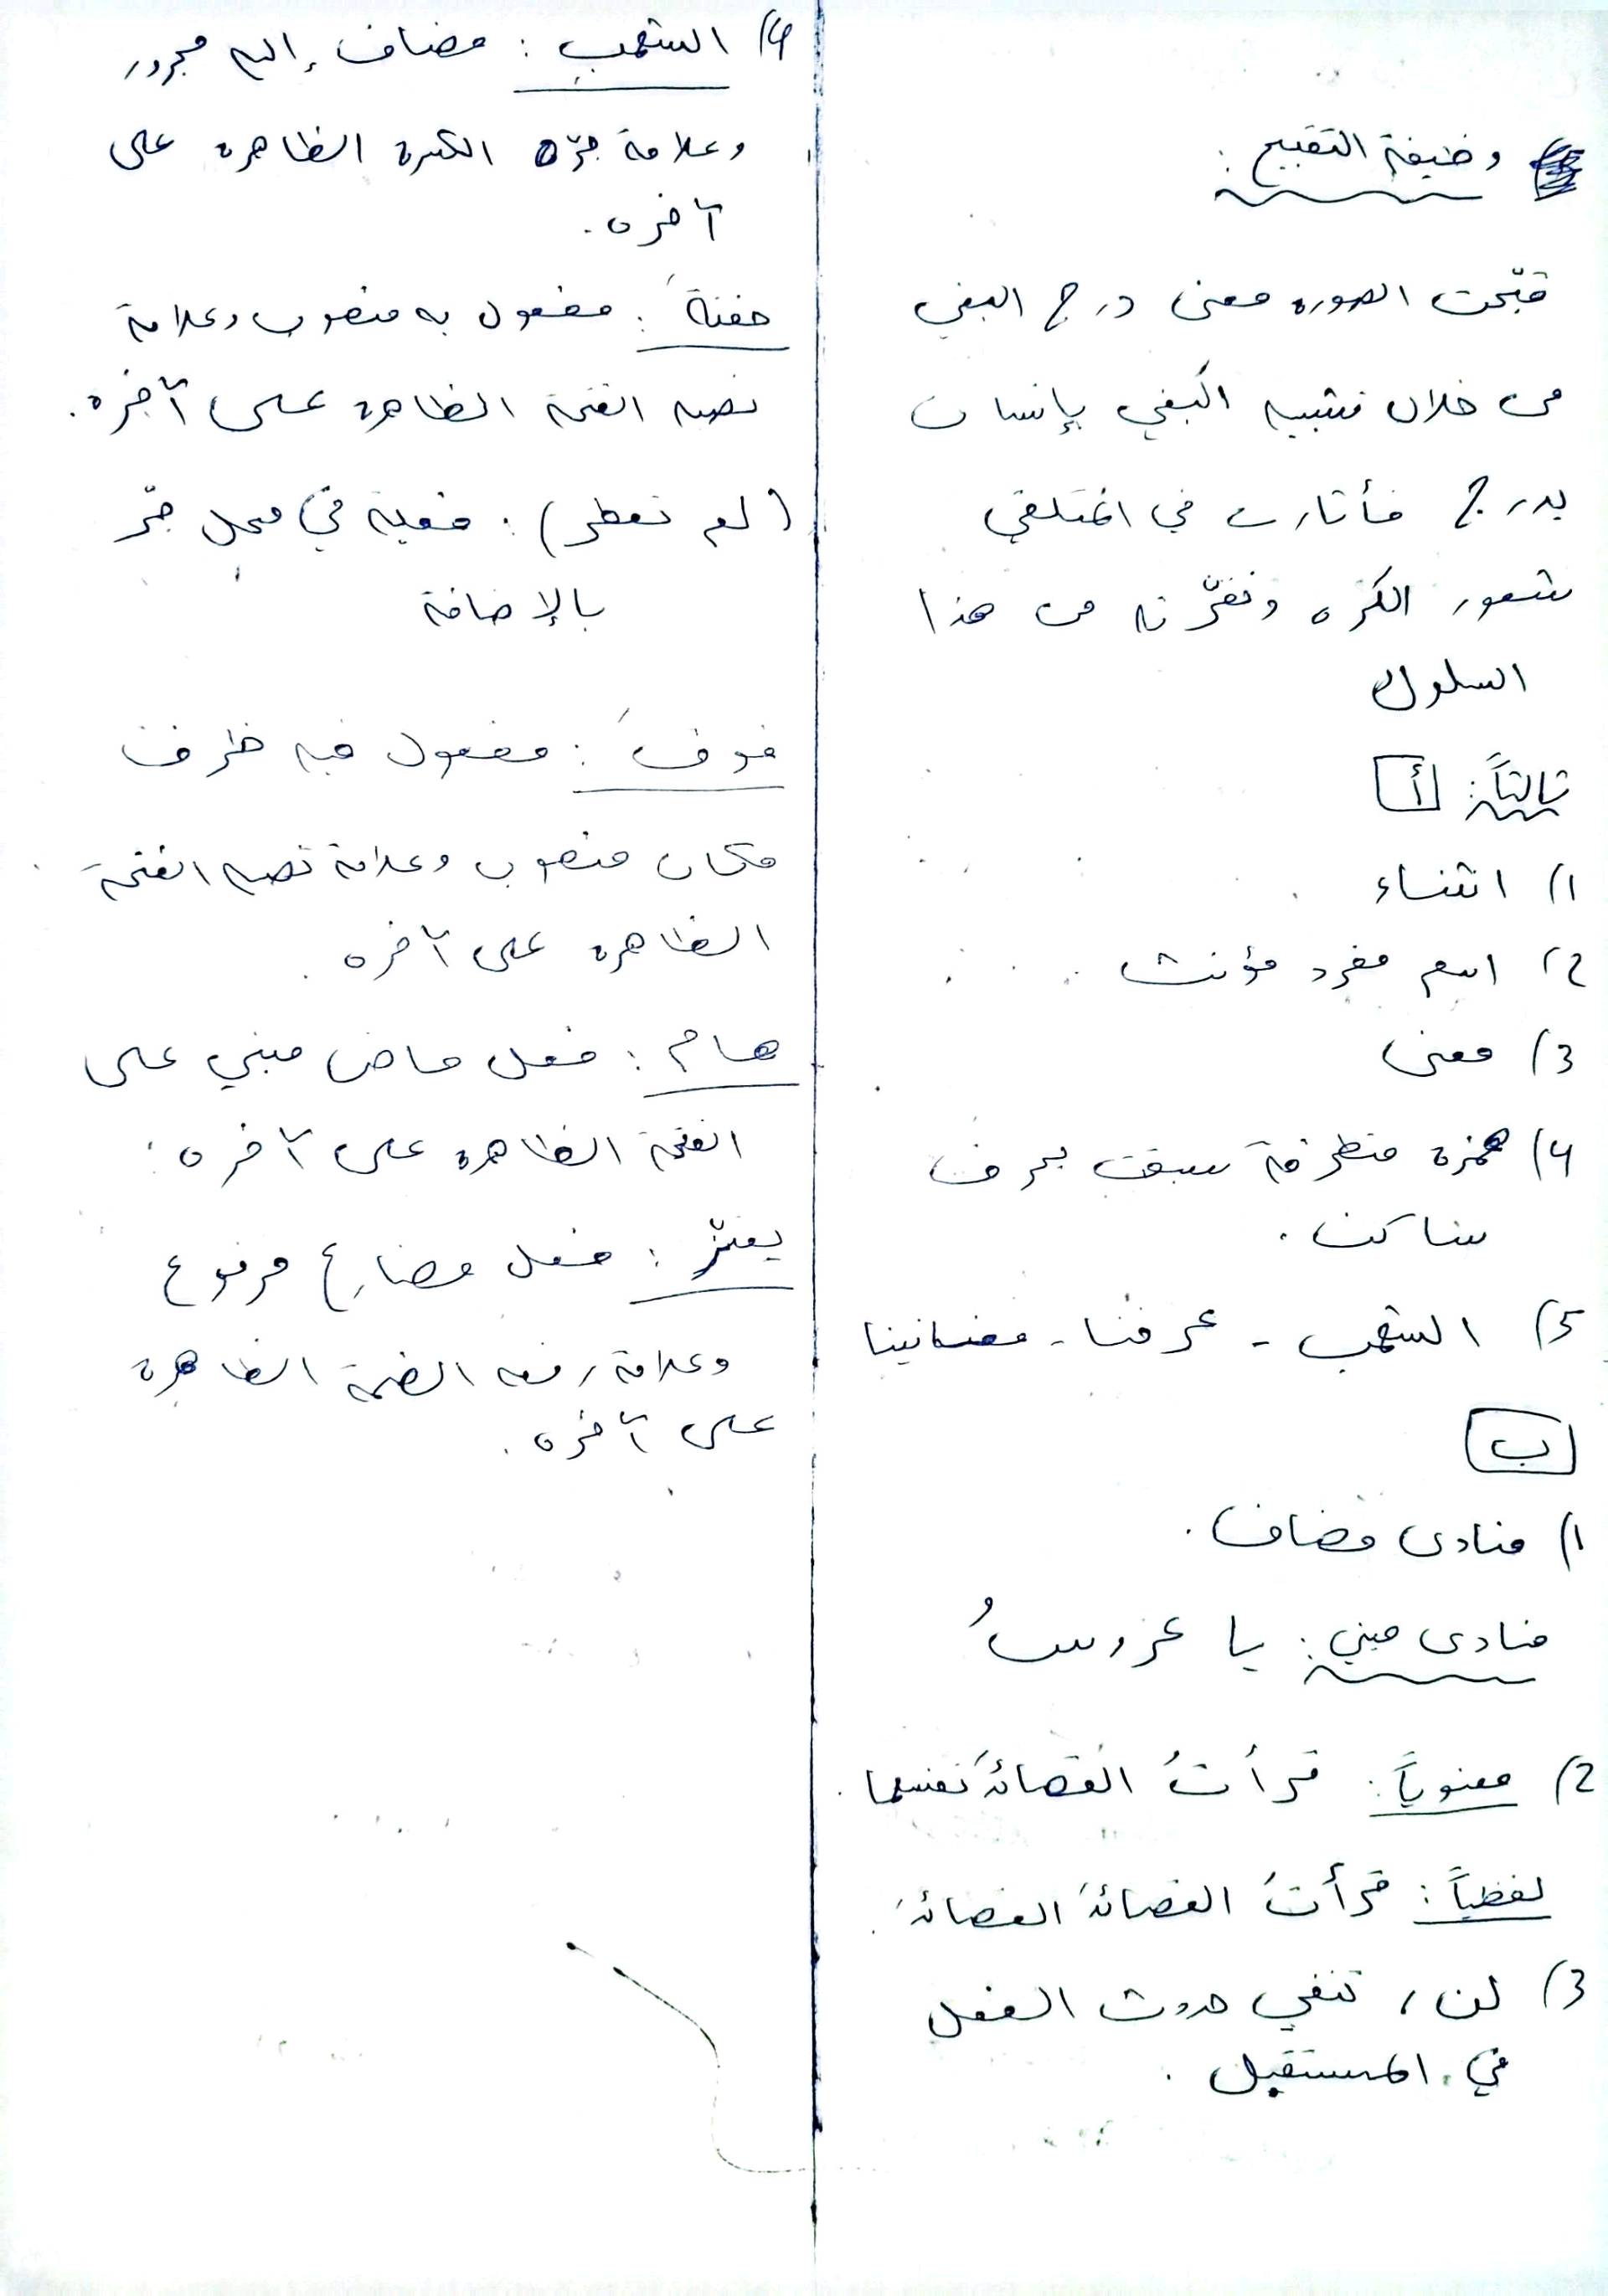 وظيفة التقبيح :
قبّحت الصورة معنى درج البغي
من خلال تشبيه البغي بإنسان
يدرج فأثارت في المتلقي
شعور الكره ونفرّته من هذا
السلوك
ثالثاً: أ
1) انثناء
2) اسم مفرد مؤنث
3) معنى
4) همزة متطرفة سبقت بحرف
ساكن .
5) الشهب - عرفنا - مغانينا
ب
1) منادى مضاف .
منادى مبني : يا عروسُ
2) معنوياً : قرأتُ القصائدَ نفسها .
لفظياً : قرأتُ القصائدَ القصائدَ .
3) لن ، تنفي حدوث الفعل
في المستقبل .
4) الشهبِ : مضاف إليه مجرور
وعلامة جرّه الكسرة الظاهرة على
آخره .
حفنةَ : مفعول به منصوب وعلامة
نصبه الفتحة الظاهرة على آخره .
(لم تعطر) : فعلية في محل جرّ
بالإضافة
فوقَ : مفعول فيه ظرف
مكان منصوب وعلامة نصبه الفتحة
الظاهرة على آخره .
هام : فعل ماض مبني على
الفتحة الظاهرة على آخره .
: فعل مضارع مرفوع
وعلامة رفعه الضمة الظاهرة
على آخره .